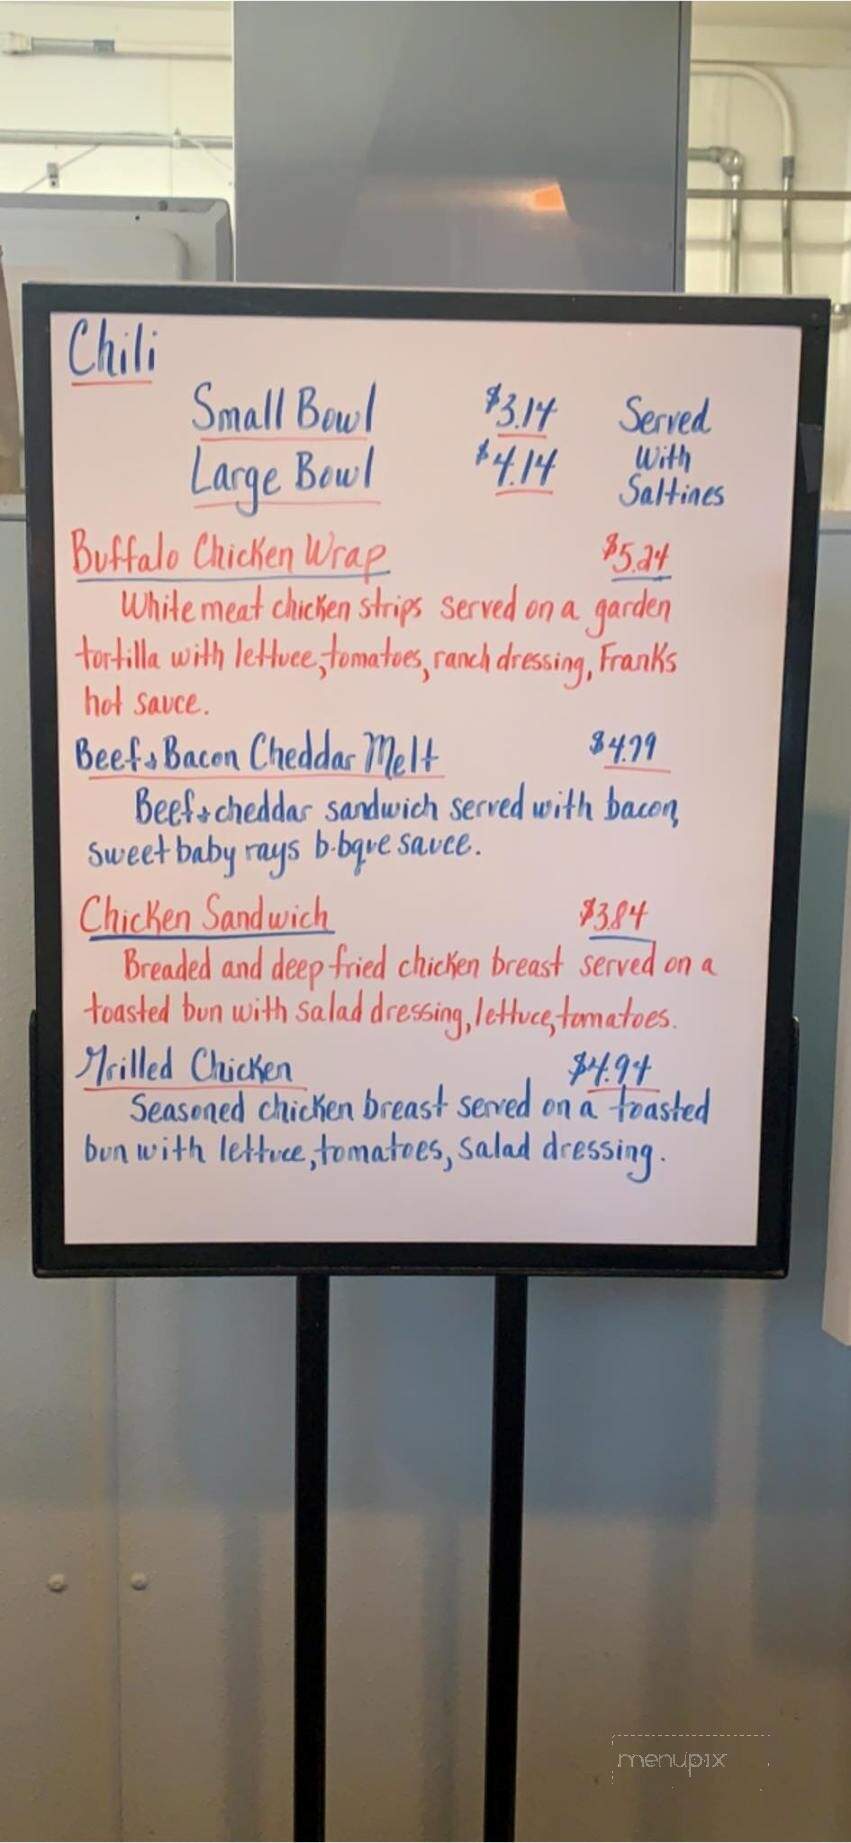 Chili
Small Bowl $3.14 Served
Large Bowl $4.14 With
Saltines
Buffalo Chicken Wrap $5.24
White meat chicken strips served on a garden
tortilla with lettuce, tomatoes, ranch dressing, Franks
hot sauce.
Beef & Bacon Cheddar Melt $4.79
Beef & cheddar sandwich served with bacon,
sweet baby rays b-bque sauce.
Chicken Sandwich $3.84
Breaded and deep fried chicken breast served on a
toasted bun with salad dressing, lettuce, tomatoes.
Grilled Chicken $4.94
Seasoned chicken breast served on a toasted
bun with lettuce, tomatoes, salad dressing.
menupix